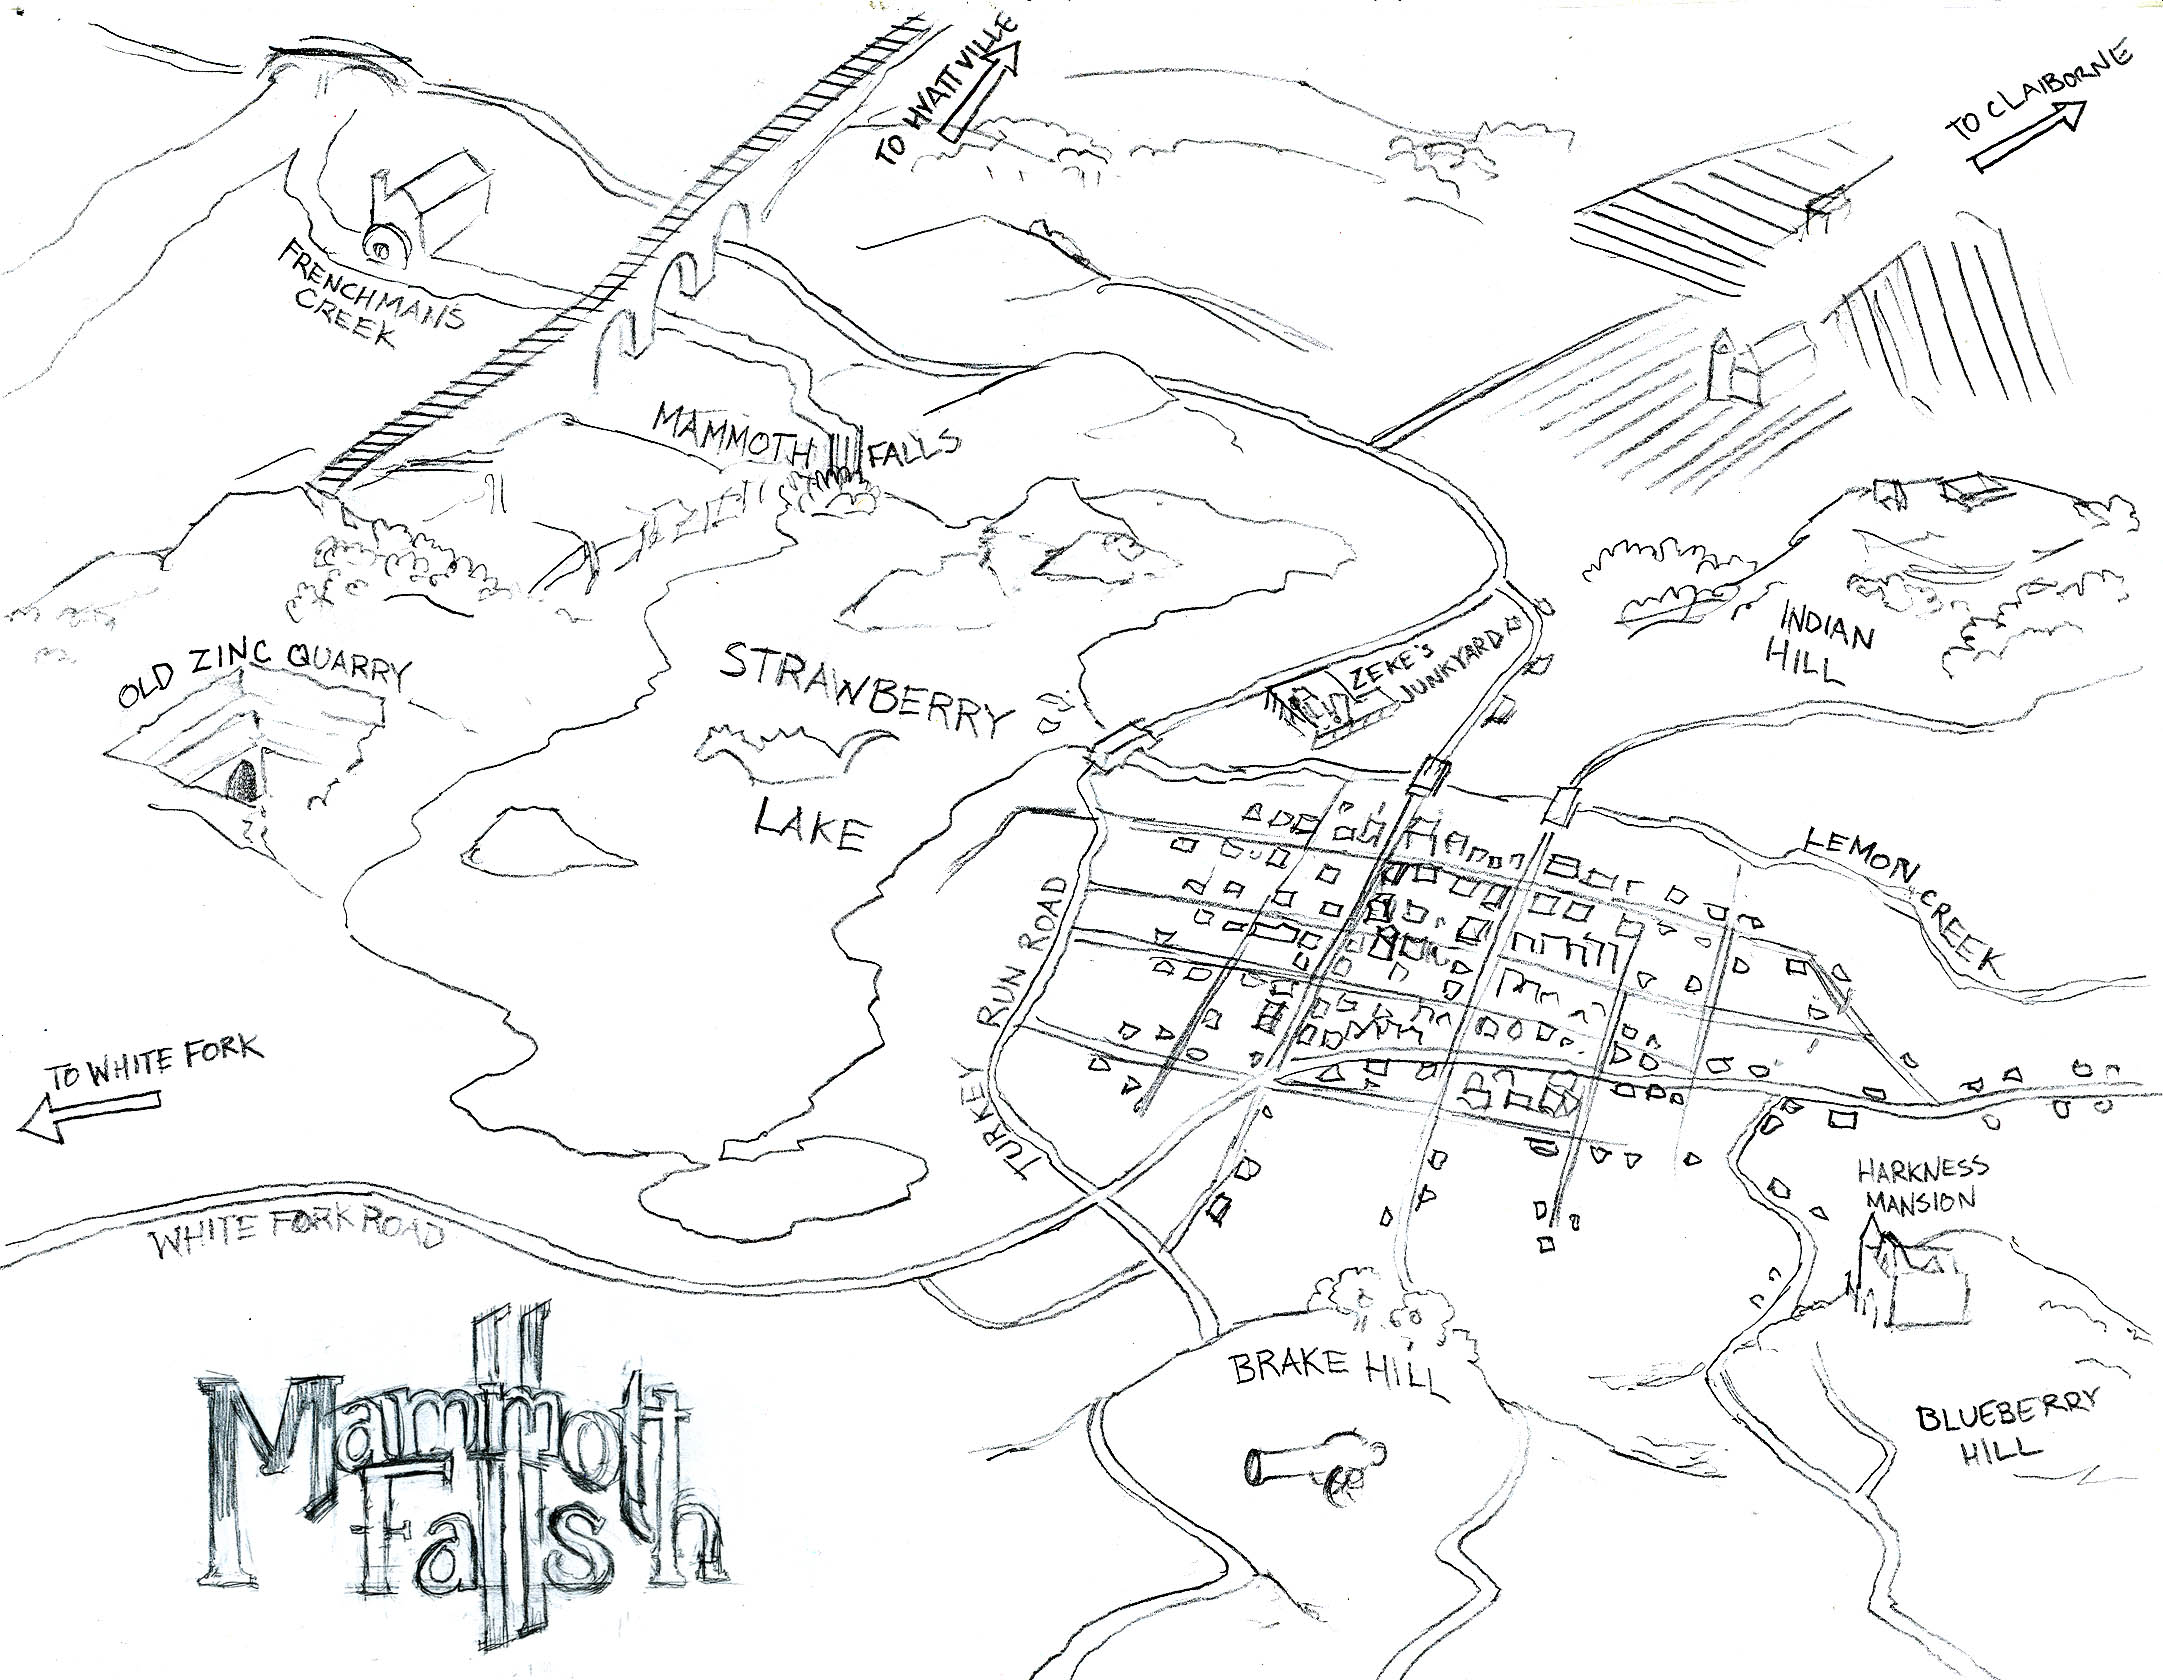 TO HYATTVILLE
TO CLAIBORNE
FRENCHMAN'S
CREEK
MAMMOTH FALLS
OLD ZINC QUARRY
STRAWBERRY
LAKE
ZEKE'S
JUNKYARD
INDIAN
HILL
LEMON CREEK
TURKEY RUN ROAD
TO WHITE FORK
WHITE FORK ROAD
HARKNESS
MANSION
BRAKE HILL
BLUEBERRY
HILL
Mammoth
Falls